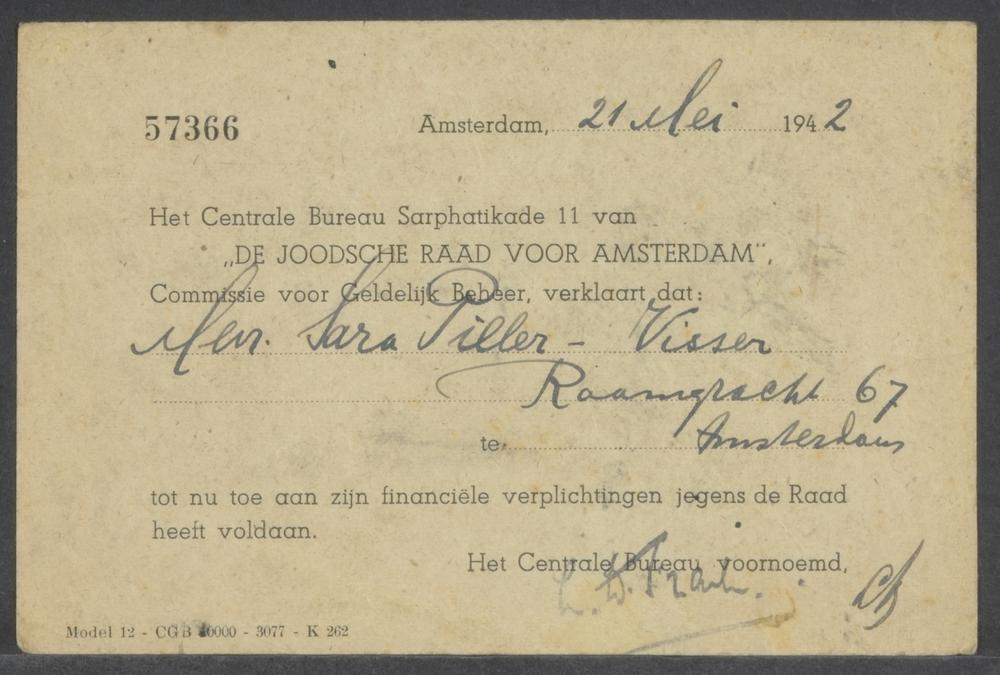 57366 Amsterdam, 21 Mei 1942
Het Centrale Bureau Sarphatikade 11 van
„DE JOODSCHE RAAD VOOR AMSTERDAM",
Commissie voor Geldelijk Beheer, verklaart dat:
Mevr. Sara Piller - Visser
Raamgracht 67
te Amsterdam
tot nu toe aan zijn financiële verplichtingen jegens de Raad
heeft voldaan.
Het Centrale Bureau voornoemd,
Model 12 - CGB 40000 - 3077 - K 262